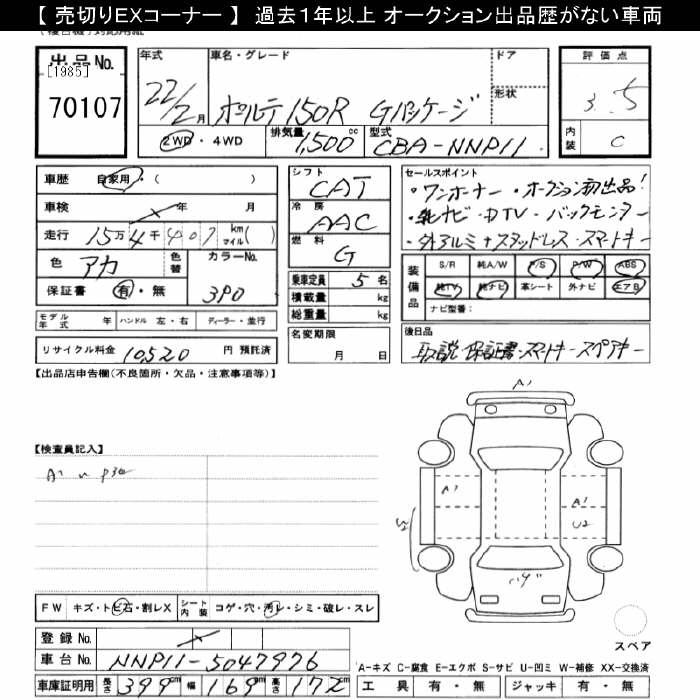 【 売切りEXコーナー 】 過去1年以上 オークション出品歴がない車両
出品No.
[1985]
70107
年式
22/2月
車名・グレード
ポルテ 150R Gパッケージ
ドア
形状
2WD・4WD
排気量 1,500 cc
型式 CBA-NNP11
評価点
3.5
内装 C
車歴 自家用・( )
車検 年 月
走行 15万4千407 km マイル( )
色 アカ 色替 カラーNo. 3P0
保証書 有・無
モデル年式 年 ハンドル 左・右 ディーラー・並行
リサイクル料金 10520 円 預託済
シフト CAT
冷房 AAC
燃料 G
乗車定員 5 名
積載量 kg
総重量 kg
名変期限
月 日
セールスポイント
・ワンオーナー・オークション初出品!
・純ナビ・DTV・バックモニター
・外アルミ+スタッドレス・スマートキー
装備品
S/R 純A/W P/S P/W ABS
純TV 純ナビ 革シート 外ナビ エアB
ナビ型番:
後日品
取説・保証書・スマートキー・スペアキー
【出品店申告欄(不良箇所・欠品・注意事項等)】
【検査員記入】
A1
A1
A1
U2
U2
FW キズ・トビ石・割レX シート内装 コゲ・穴・汚レ・シミ・破レ・スレ
登録No.
車台No. NNP11-5047976
車庫証明用 長さ 399cm 幅 169cm 高さ 172cm
スペア
A-キズ C-腐食 E-エクボ S-サビ U-凹ミ W-補修 XX-交換済
工具 有・無 ジャッキ 有・無